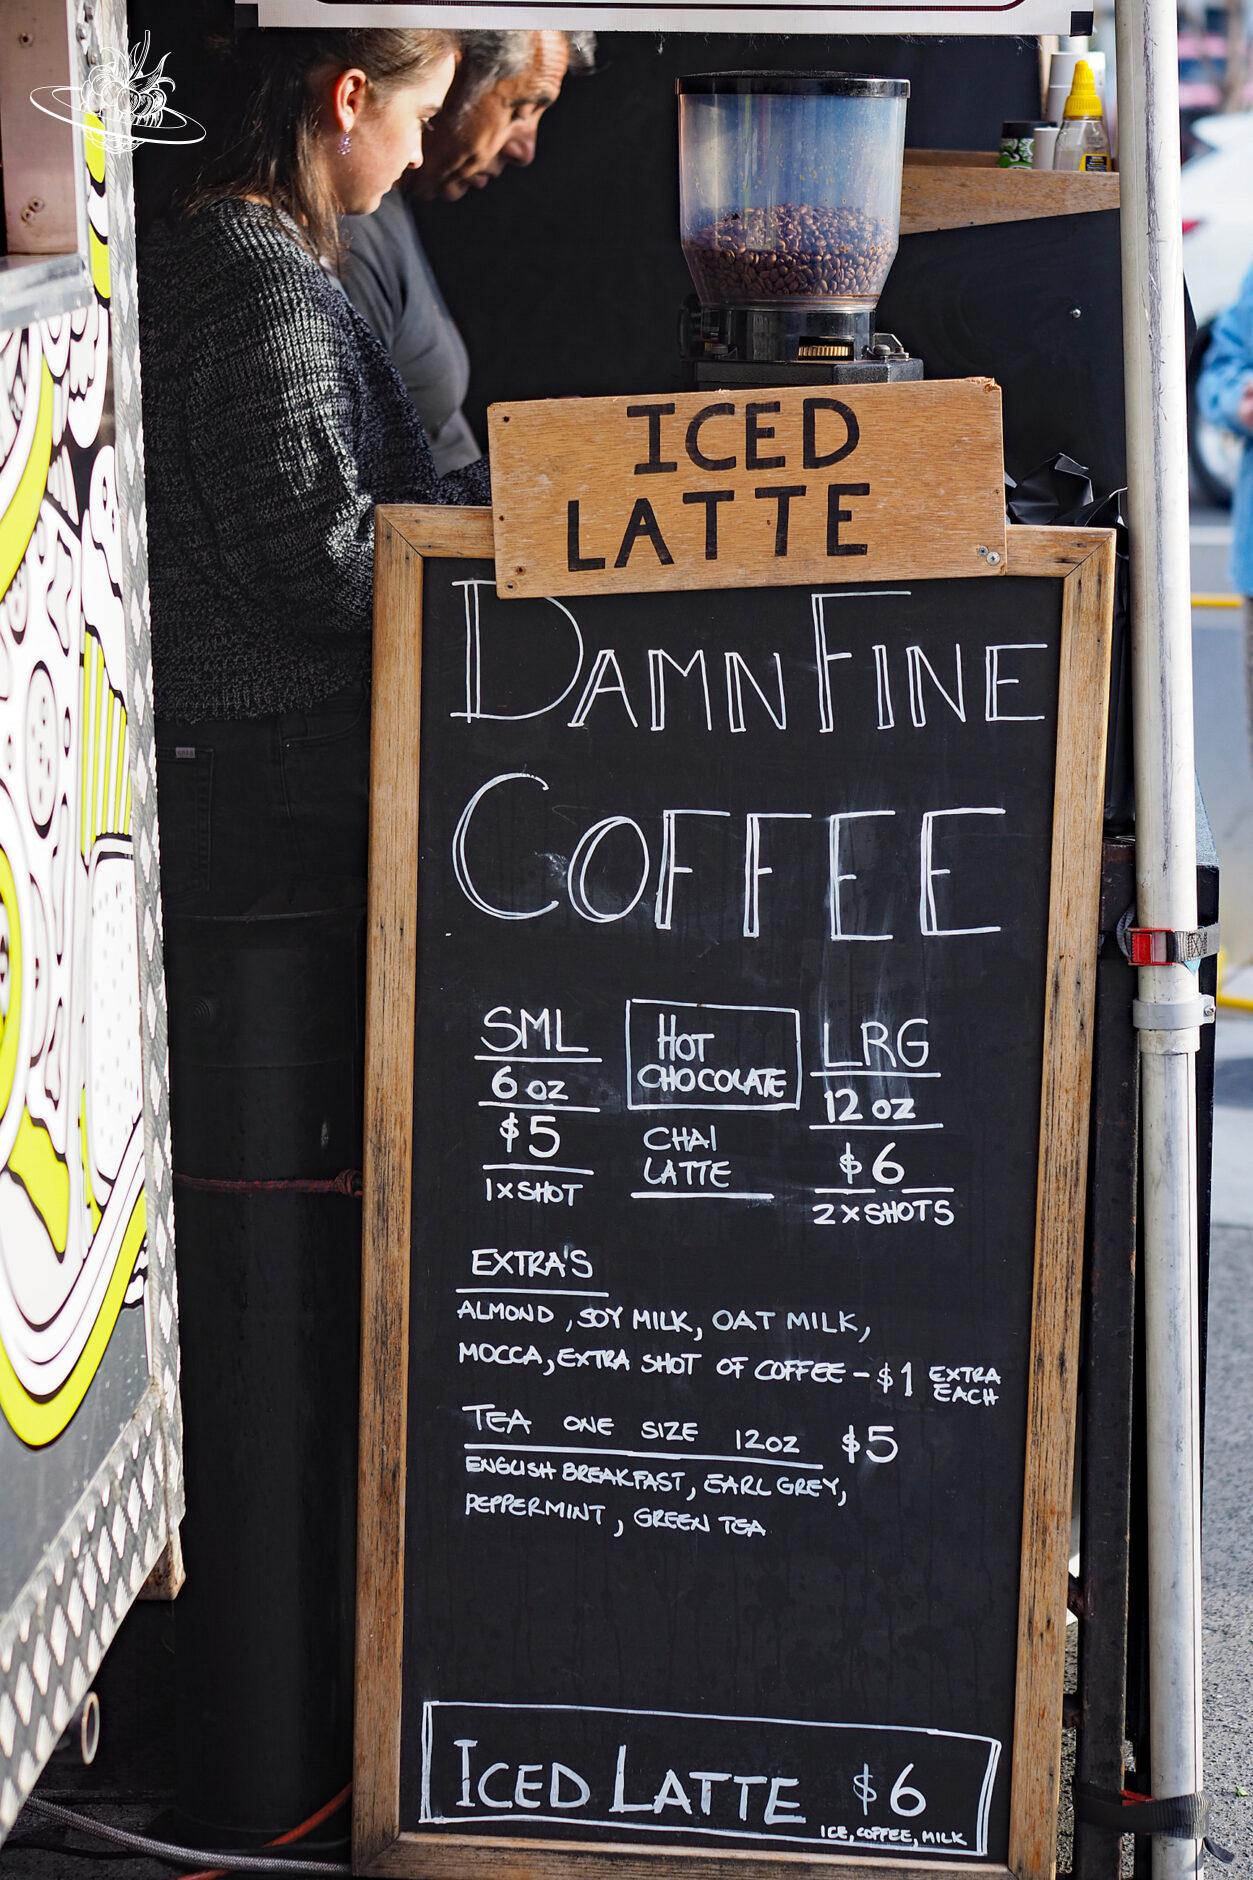 ICED
LATTE
DAMN FINE
COFFEE
SML
6 OZ
$5
1 X SHOT
HOT
CHOCOLATE
CHAI
LATTE
LRG
12 OZ
$6
2 X SHOTS
EXTRA'S
ALMOND, SOY MILK, OAT MILK,
MOCCA, EXTRA SHOT OF COFFEE - $1 EXTRA EACH
TEA ONE SIZE 12OZ $5
ENGLISH BREAKFAST, EARL GREY,
PEPPERMINT, GREEN TEA
ICED LATTE $6
ICE, COFFEE, MILK